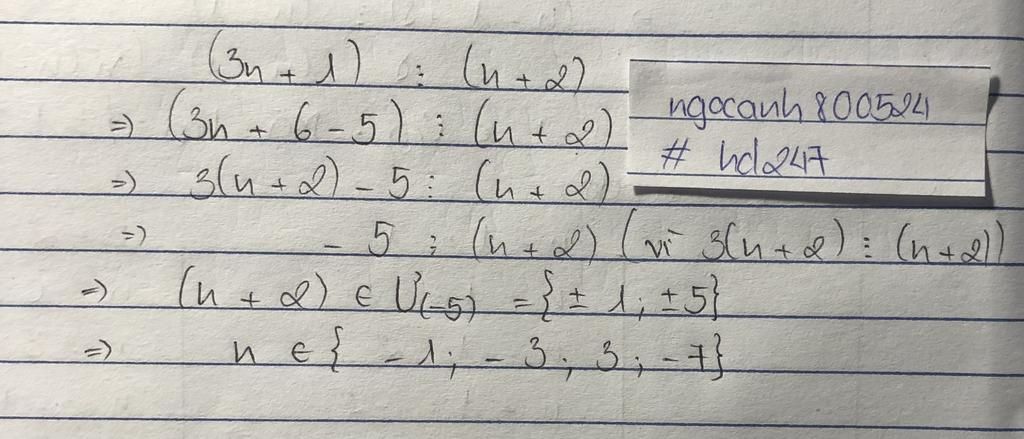 (3n + 1) ⋮ (n + 2)
⇒ (3n + 6 - 5) ⋮ (n + 2)
⇒ 3(n + 2) - 5 ⋮ (n + 2)
⇒ - 5 ⋮ (n + 2) (vì 3(n + 2) ⋮ (n + 2))
⇒ (n + 2) ∈ Ư(-5) = {± 1; ± 5}
⇒ n ∈ { - 1; - 3; 3; - 7}
ngocanh800524
# hd247